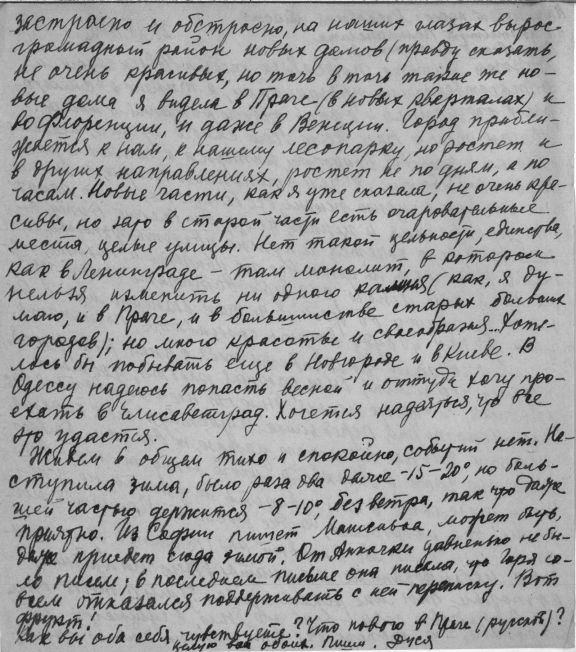 застроено и обстроено, на наших глазах вырос
громадный район новых домов (правду сказать,
не очень красивых, но точь в точь такие же но-
вые дома я видела в Праге (в новых кварталах) и
во Флоренции, и даже в Венеции. Город прибли-
жается к нам, к нашему лесопарку, но ростет и
в других направлениях, ростет не по дням, а по
часам. Новые части, как я уже сказала, не очень кра-
сивы, но зато в старой части есть очаровательные
места, целые улицы. Нет такой цельности, единства,
как в Ленинграде – там монолит, в котором
нельзя изменить ни одного камня (как, я ду-
маю, и в Праге, и в большинстве старых больших
городов); но много красоты и своеобразия... Хоте-
лось бы побывать еще в Новгороде и в Киеве. В
Одессу надеюсь попасть весной и оттуда хочу про-
ехать в Елисаветград. Хочется надеяться, что все
это удастся.
Живем в общем тихо и спокойно, событий нет. На-
ступила зима, было раза два даже -15-20°, но боль-
шей частью держится -8-10°, без ветра, так что даже
приятно. Из Софии пишет может быть,
даже приедет сюда зимой. От Анночки давненько не бы-
ло писем; в последнем письме она писала, что Горя со-
всем отказался поддерживать с ней переписку. Вот
фрукт!
Как вы оба себя чувствуете? Что нового в Праге (русской)?
Целую вас обоих. Пиши. Дуся